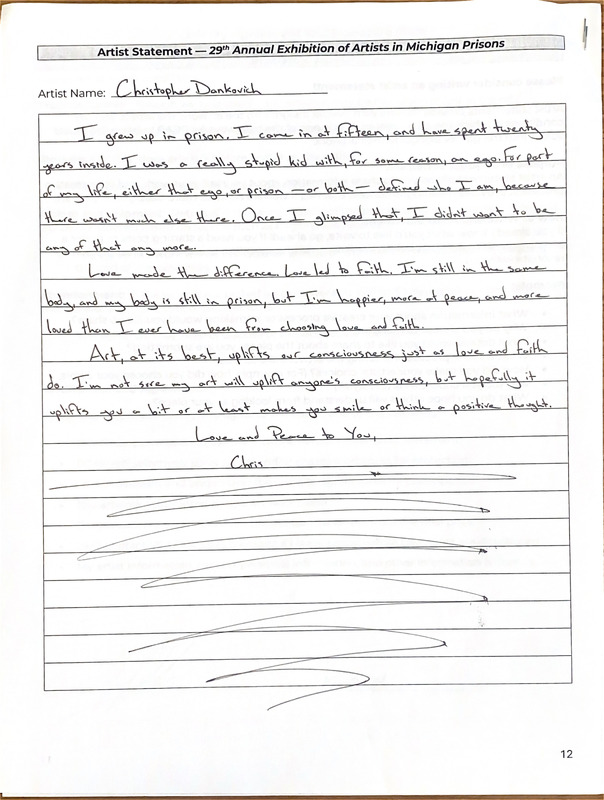 Artist Statement — 29th Annual Exhibition of Artists in Michigan Prisons
Artist Name: Christopher Dankovich
I grew up in prison. I came in at fifteen, and have spent twenty
years inside. I was a really stupid kid with, for some reason, an ego. For part
of my life, either that ego, or prison — or both — defined who I am, because
there wasn't much else there. Once I glimpsed that, I didn't want to be
any of that any more.
Love made the difference. Love led to faith. I'm still in the same
body, and my body is still in prison, but I'm happier, more at peace, and more
loved than I ever have been from choosing love and faith.
Art, at its best, uplifts our consciousness, just as love and faith
do. I'm not sure my art will uplift anyone's consciousness, but hopefully it
uplifts you a bit or at least makes you smile or think a positive thought.
Love and Peace to You,
Chris
12